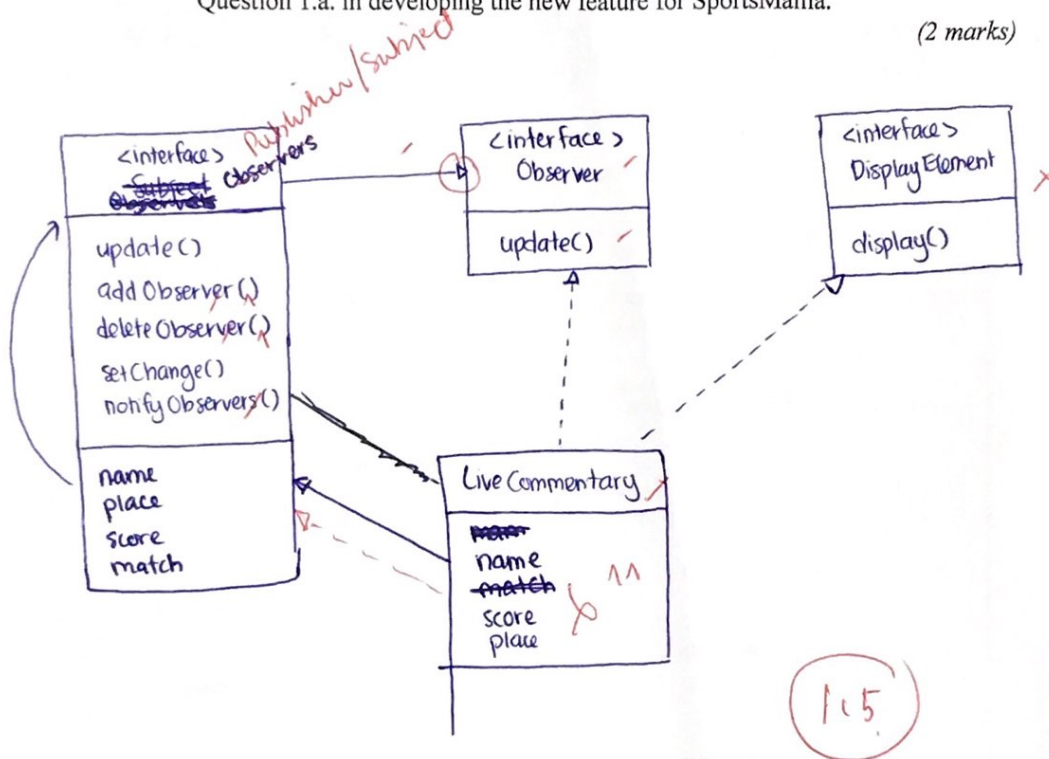 Question 1.a. in developing the new feature for SportsMania.
(2 marks)
Publisher/Subject
<interface>
Subject Observers
Observers
update()
addObserver()
deleteObserver()
setChange()
notifyObservers()
name
place
score
match
<interface>
Observer
update()
<interface>
DisplayElement
display()
LiveCommentary
name
match
score
place
1.5